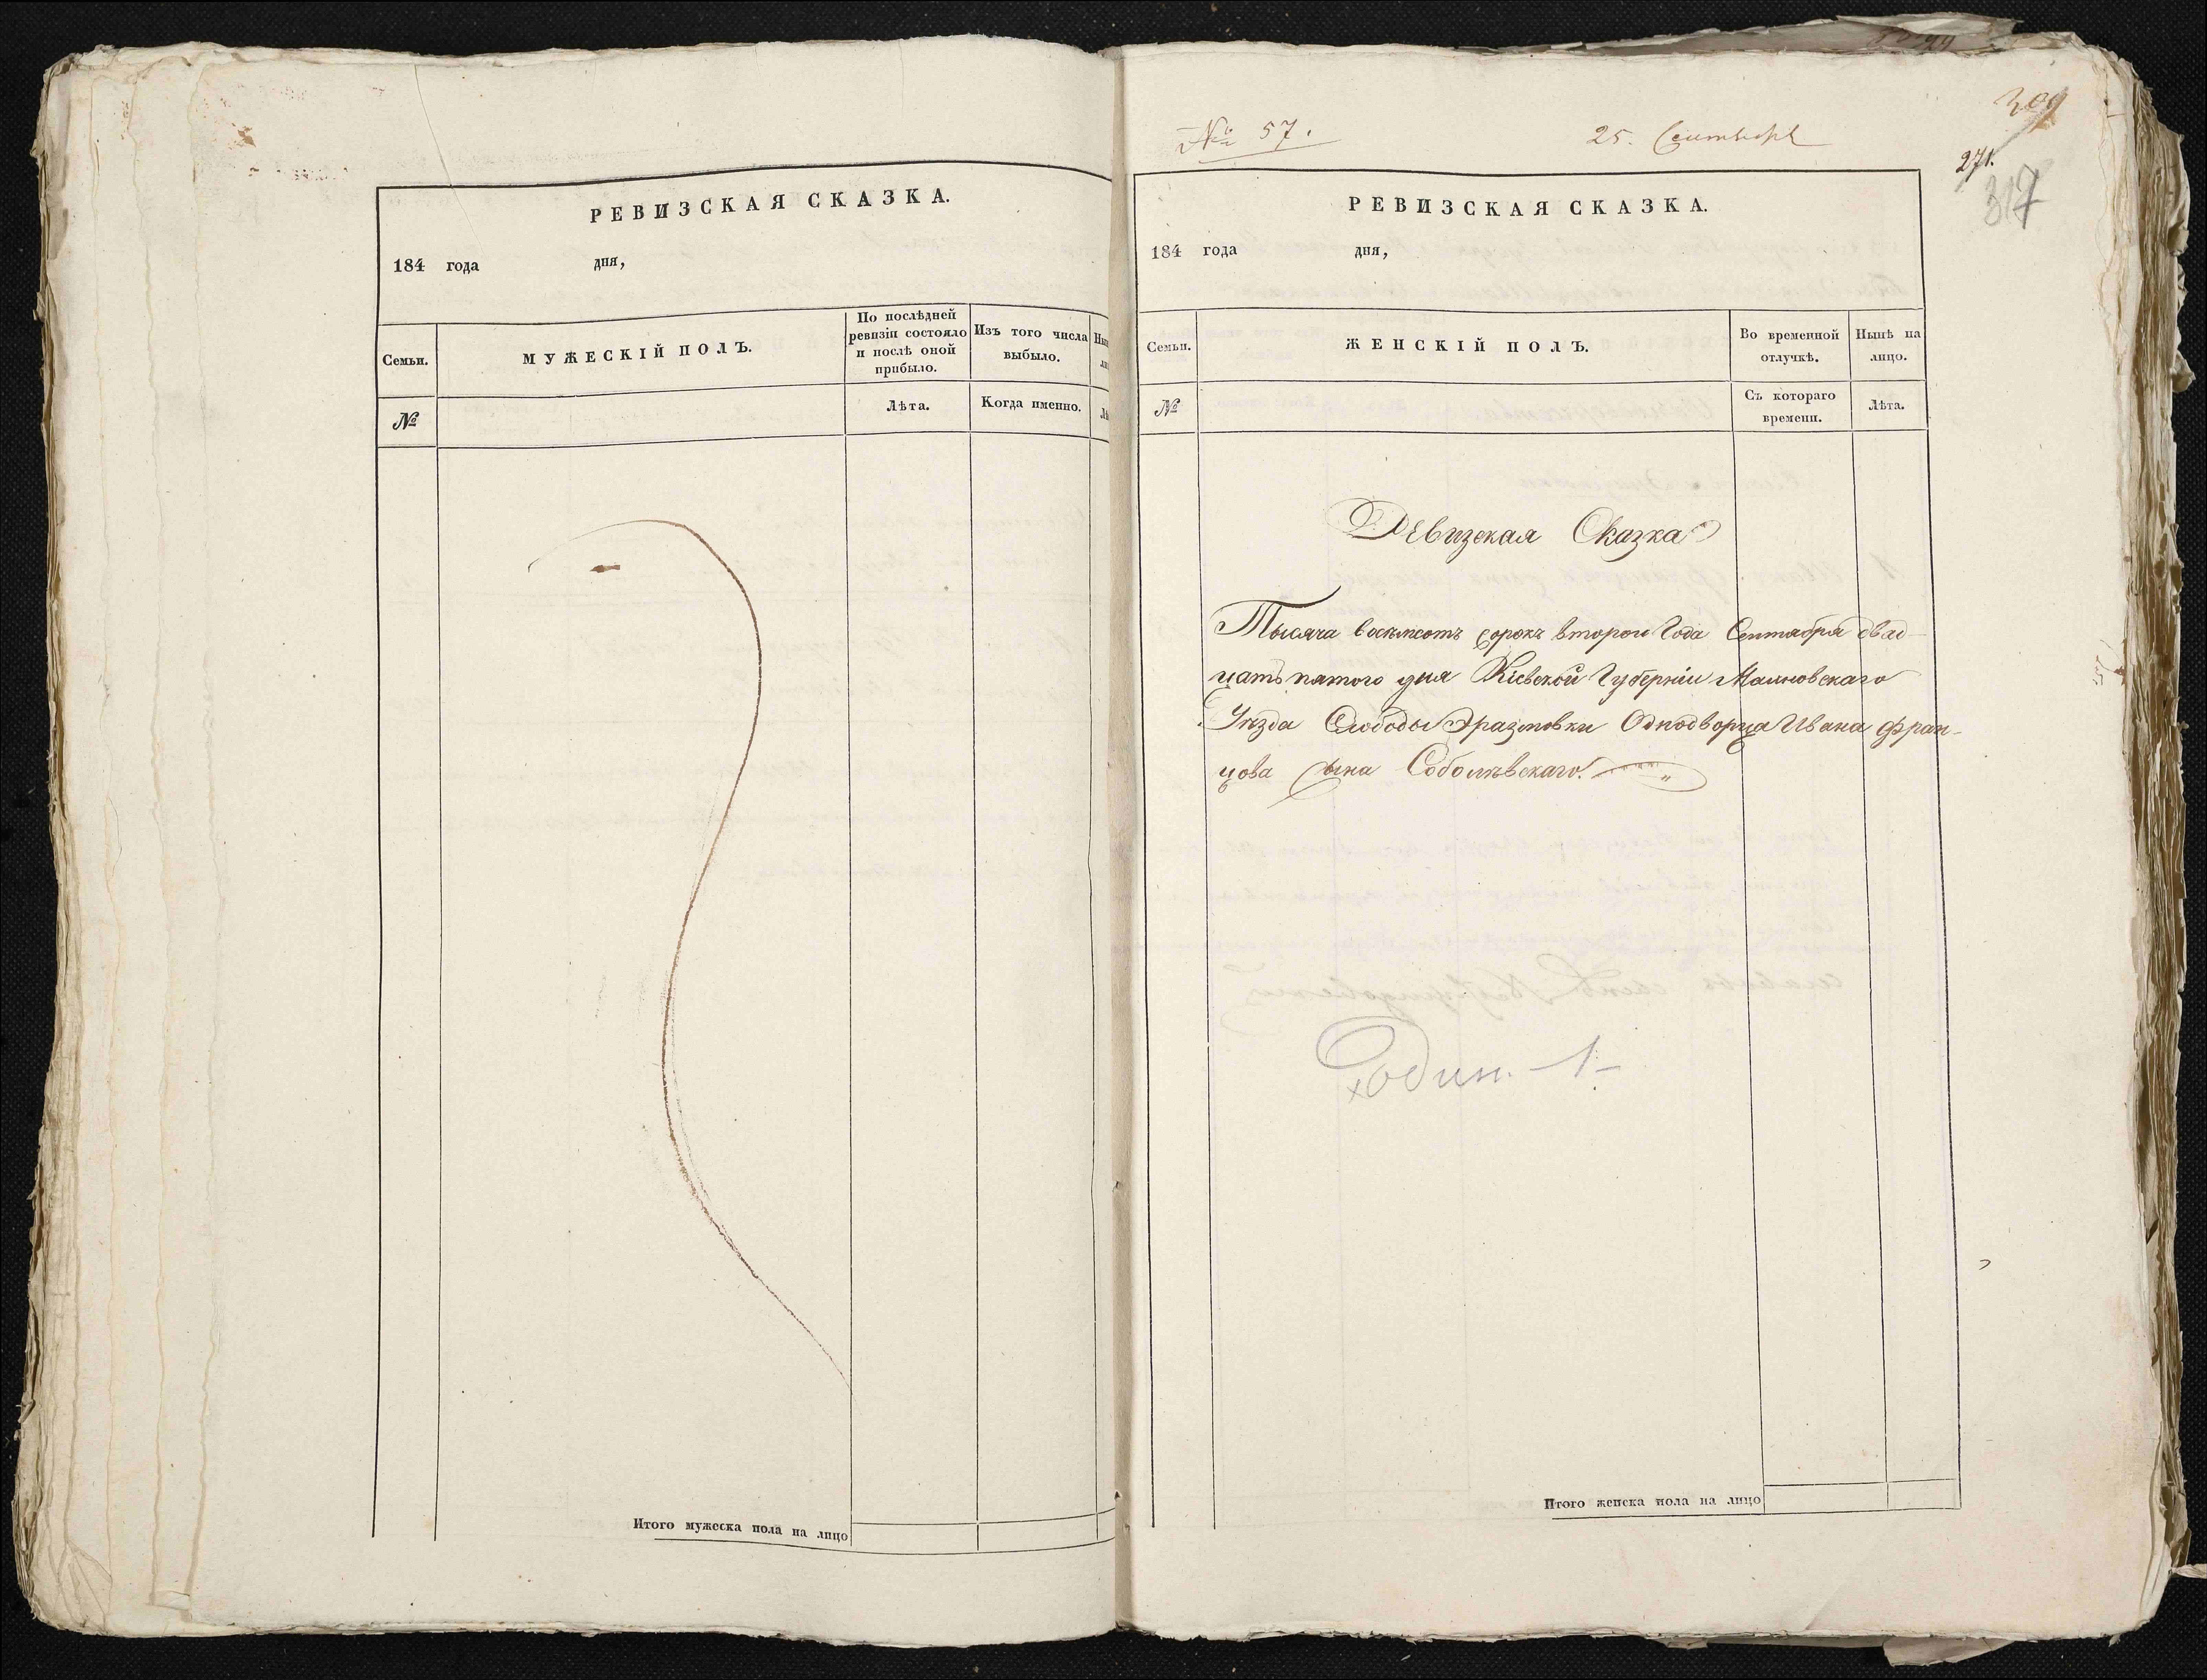 РЕВИЗСКАЯ СКАЗКА.
184 года дня,
Семьи.
МУЖЕСКІЙ ПОЛЪ.
По послѣдней
ревизіи состояло
и послѣ оной
прибыло.
Изъ того числа
выбыло.
№
Лѣта.
Когда именно.
Итого мужеска пола на лицо
№ 57.
25. Сентября
271.
317
РЕВИЗСКАЯ СКАЗКА.
184 года дня,
Семьи.
ЖЕНСКІЙ ПОЛЪ.
Во временной
отлучкѣ.
Нынѣ на
лицо.
№
Съ котораго
времени.
Лѣта.
Ревизская Сказка
Тысяча восемсотъ сорокъ втораго Года Сентября двад-
цать пятого дня Кіевской Губерніи Махновскаго
Уѣзда Слободы Эразмовки Однодворца Ивана Фран-
цова сына Соболѣвскаго.
Один. 1
Итого женска пола на лицо